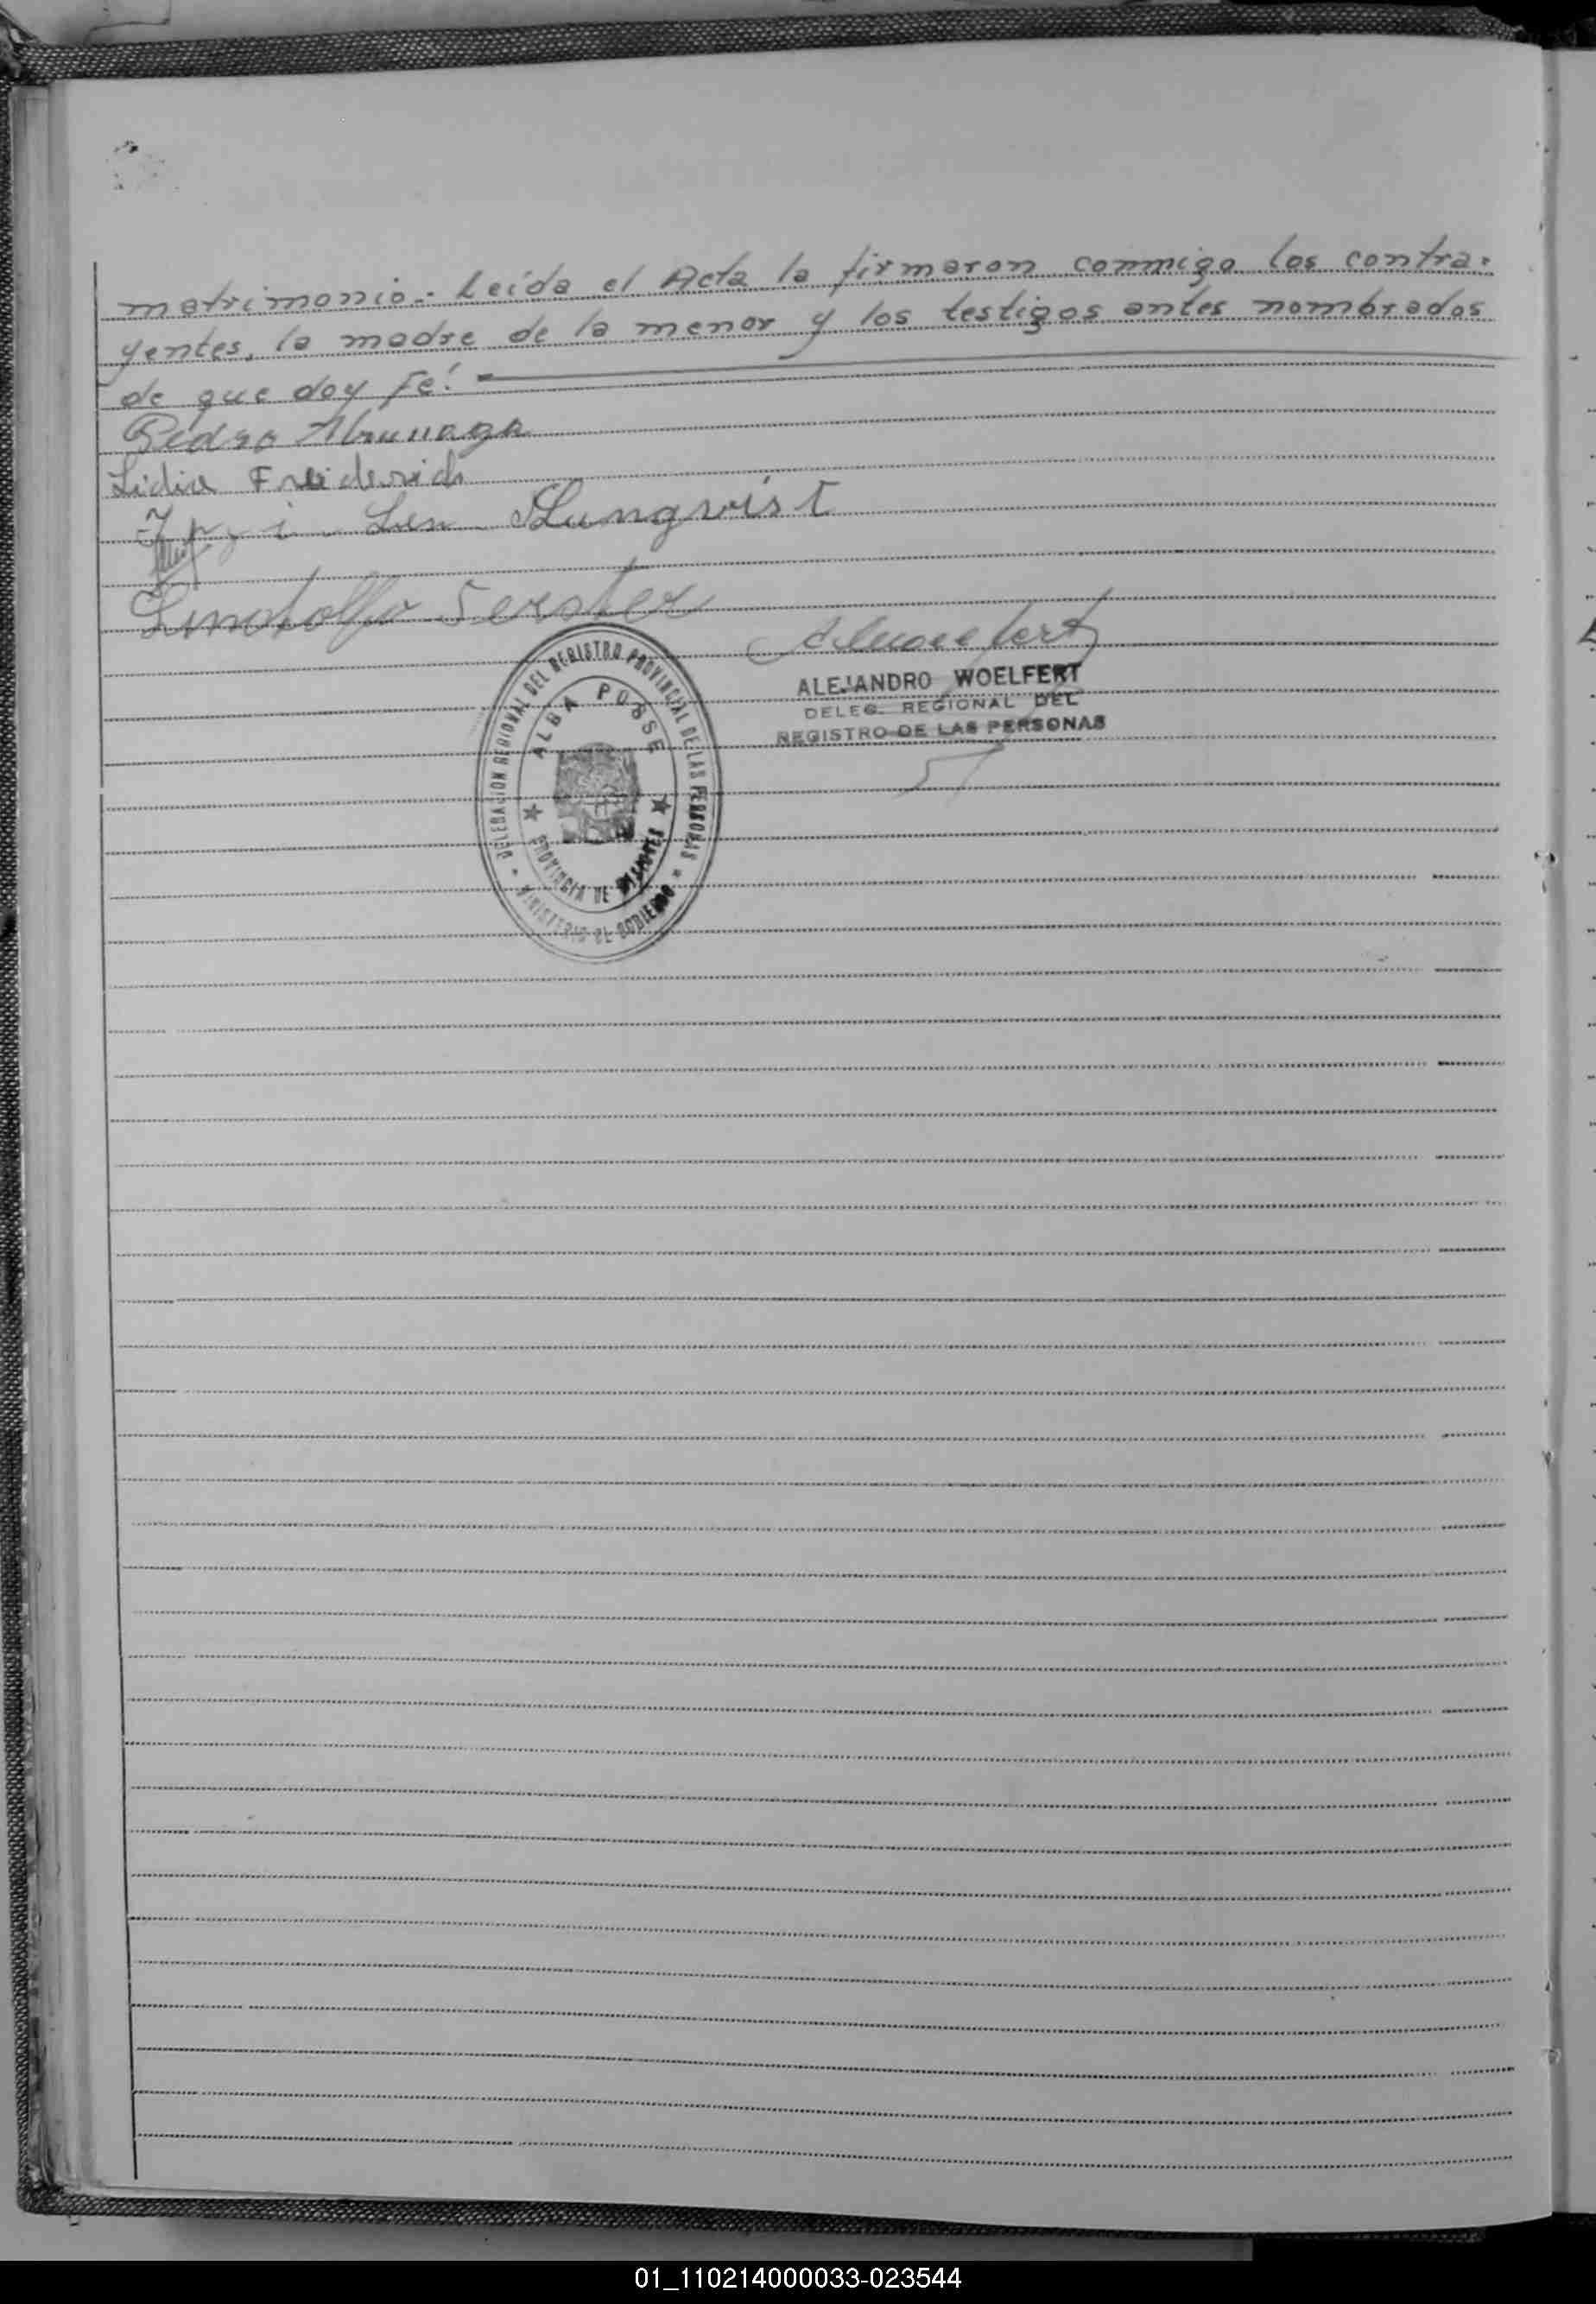 matrimonio.- Leída el Acta la firmaron conmigo los contra-
yentes, la madre de la menor y los testigos antes nombrados
de que doy Fe!
Pedro
Lidia Freiderich
Lungvist
ALEJANDRO WOELFERT
DELEG. REGIONAL DEL
REGISTRO DE LAS PERSONAS
DELEGACION REGIONAL DEL REGISTRO PROVINCIAL DE LAS PERSONAS
MINISTERIO DE GOBIERNO
ALBA POSSE
PROVINCIA DE MISIONES
01_110214000033-023544